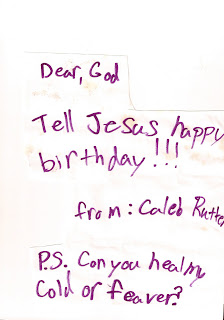 Dear, God
Tell Jesus happy
birthday!!!
from: Caleb Rutte
P.S. Can you heal my
Cold or feaver?